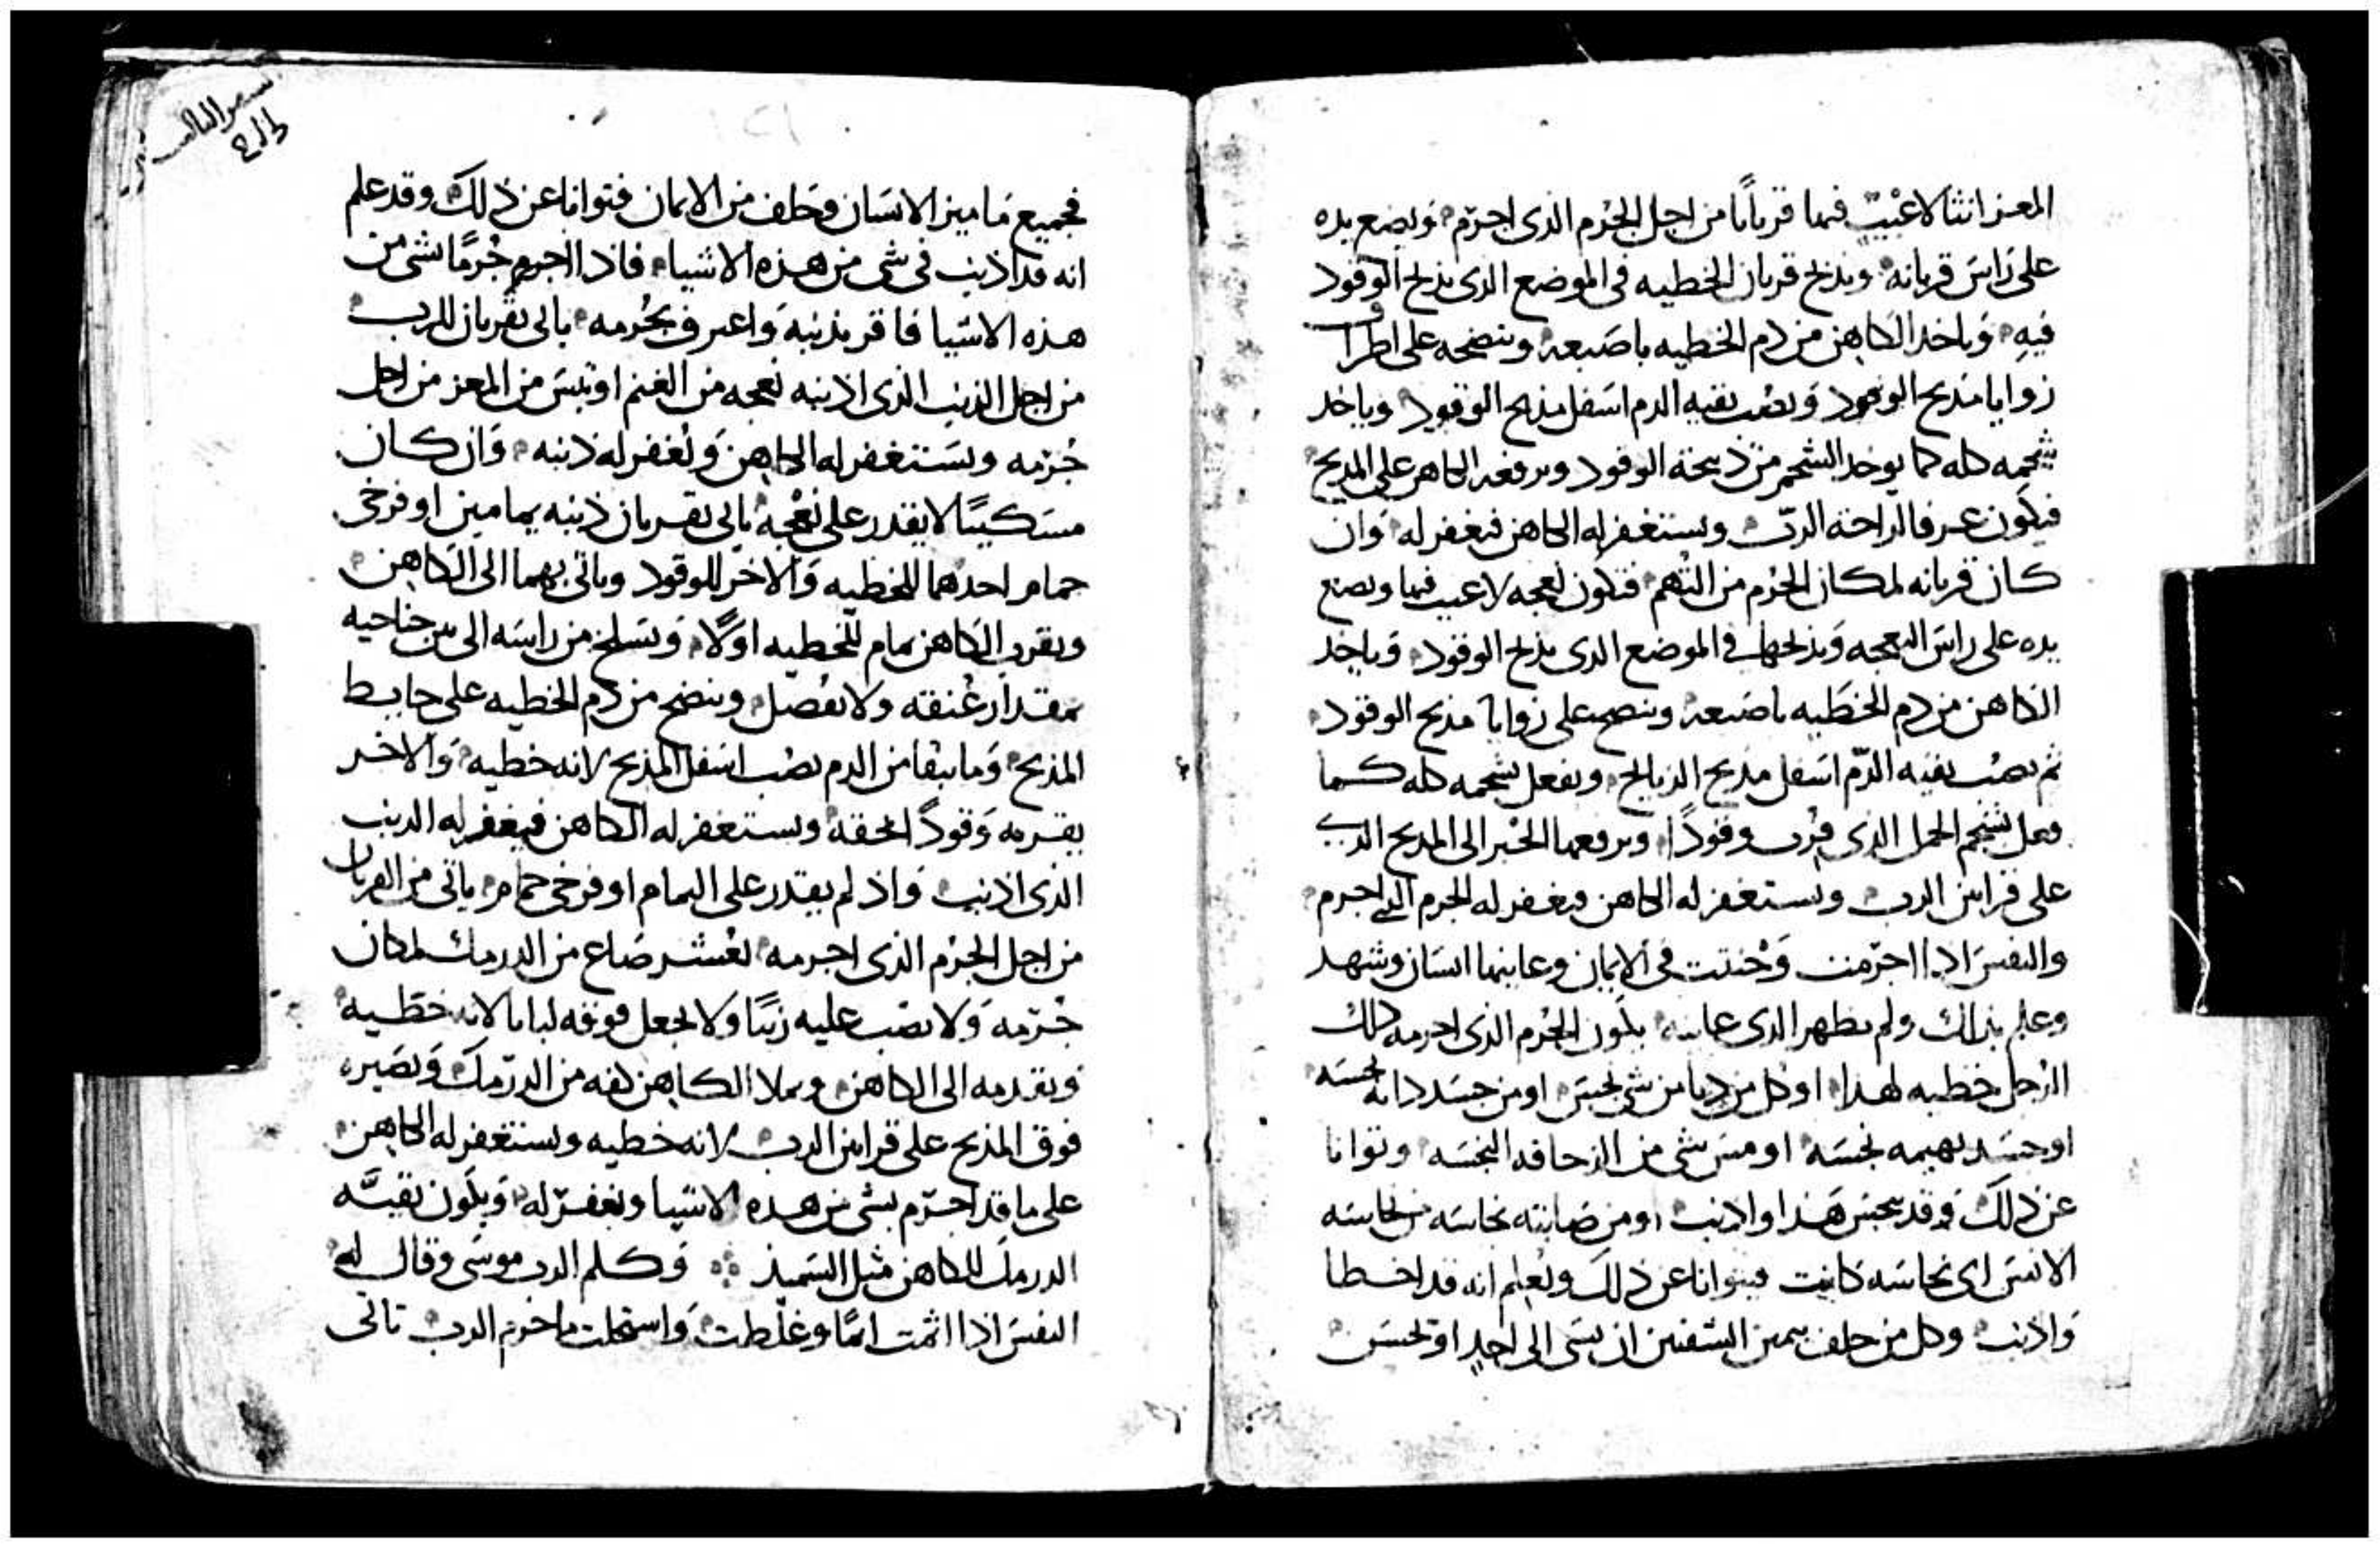 المعز انثا لا عيب فيها قرباناً من اجل الجرم الذى اجرم ويضع يده
على راس قربانه ويذبح قربان الخطيه فى الموضع الذى يذبح الوقود
فيه وياخد الكاهن من دم الخطيه باصبعه وينضحه على اطراف
زوايا مذبح الوقود ويصب بقيه الدم اسفل مذبح الوقود وياخد
شحمه كله كما يوخد الشحم من ذبيحة الوقود ويرفعه الكاهن على المذبح
فيكون عرفا لراحة الرب ويستغفر له الكاهن فيغفر له وان
كان قربانه لمكان الجرم من البهم فتكون نعجه لا عيب فيها ويضع
يده على راس النعجه ويذبحها فى الموضع الذى يذبح الوقود وياخد
الكاهن من دم الخطيه باصبعه وينضحه على زوايا مذبح الوقود
ثم يصب بقيه الدم اسفل مذبح الذبايح ويفعل بشحمه كله كما
فعل بشحم الحمل الذى قرب وقوداً ويرفعها الحبر الى المذبح الذى
على قراين الرب ويستغفر له الكاهن فيغفر له الجرم الذى اجرم
والنفس اذا اجرمت وحنثت فى الايمان وعاينها انسان وشهد
وعلم بذالك ولم يظهر الذى عاينه يكون الجرم الذى اجرمه ذلك
الرجل خطيه لهذا او كل من دنا من شى نجس او من جسد دابه نجسه
او جسد بهيمه نجسه او مس شى من الزحافه النجسه وتوانا
عن ذلك فقد نجس هذا واذنب او من صابته نجاسه من نجاسه
الانس اى نجاسه كانت فيتوانا عن ذلك ويعلم انه قد اخطا
واذنب وكل من حلف بيمين الشفتين ان يسى الى احد او يحسن
سفر الثالث
فجميع ما يميز الانسان وحلف من الايمان فتوانا عن ذلك وقد علم
انه قد اذنب فى شى من هذه الاشيا فاذا اجرم جرمًا بشى من
هذه الاشيا فاقر بذنبه واعترف بجرمه ياتى بقربان للرب
من اجل الذنب الذى اذنبه نعجه من الغنم او تيس من المعز من اجل
جرمه ويستغفر له الكاهن ويُغفر له ذنبه وان كان
مسكينًا لا يقدر على نعجة ياتى بقربان ذنبه يمامين او فرخى
حمام احدهما للخطيه والاخر للوقود وياتى بهما الى الكاهن
ويقرب الكاهن يمام للخطيه اوّلًا ويسلخ من راسه الى بين جناحيه
بمقدار عنقه ولا يفصل وينضح من دم الخطيه على حايط
المذبح وما يبقا من الدم يصب اسفل المذبح لانه خطيه والاخر
يقربه وقوداً لحقه ويستغفر له الكاهن فيغفر له الذنب
الذى اذنب واذ لم يقتدر على اليمام او فرخى حمام ياتى من القربان
من اجل الجرم الذى اجرمه بعُشر صاع من الدرمك لمكان
جرمه ولا يصب عليه زيتًا ولا يجعل فوقه لبانا لانه خطيه
ويقدمه الى الكاهن ويملا الكاهن كفه من الدرمك ويصيره
فوق المذبح على قراين الرب لانه خطيه ويستغفر له الكاهن
على ما قد اجرم بشى من هذه الاشيا ويغفر له ويكون بقيه
الدرمك للكاهن مثل السميذ وكلم الرب موسى وقال له
النفس اذا اثمت اثمًا وغلطت واستحلت ما حرم الرب تاتى